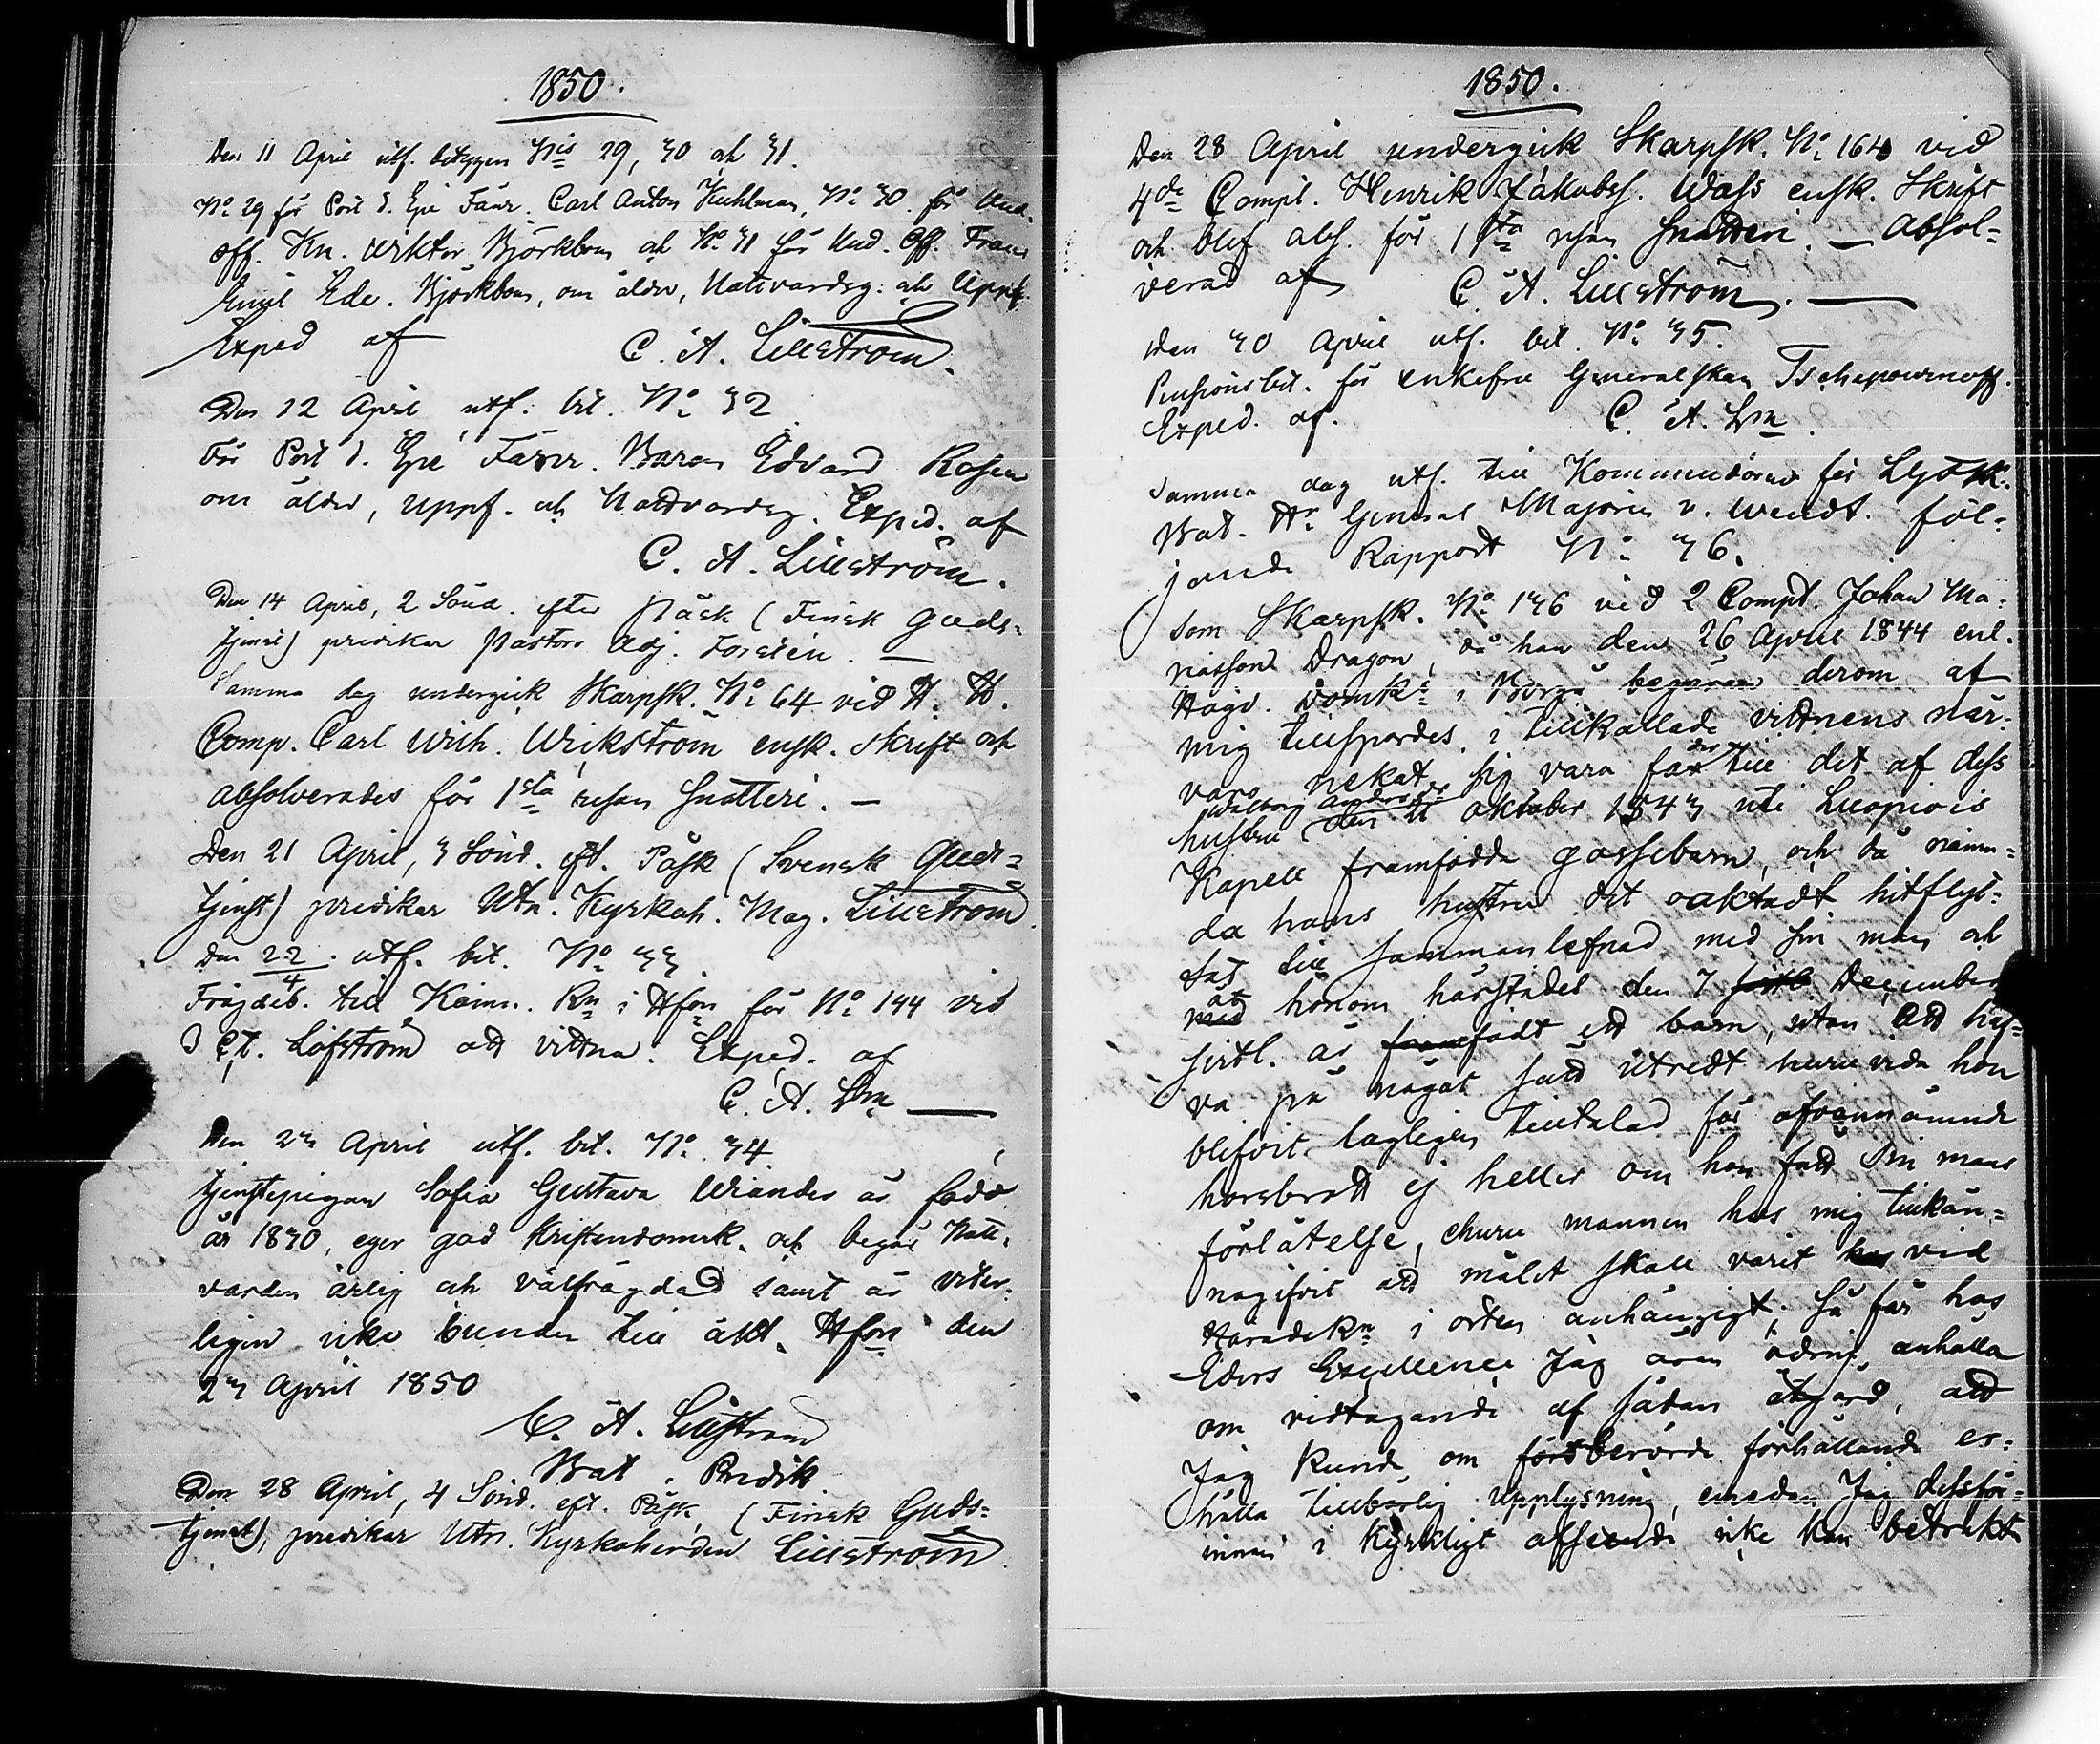 1850.
Den 11 April utf. betygen N:is 29, 30 och 31.
N:o 29 för Port d. Epé Fänr. Carl Anton Kuhlman, N:o 30. för Und.
off. Kn. Viktor Björkbom och N:o 31 för Und. Off. Frans
Emil Edv. Björkbom, om ålder, Nattvardsg: och Uppf.
Exped af C. A. Lillström.
Den 12 April utf. bet. N:o 32
För Port d. Epé Fänr. Baron Edvard Rosen
om ålder, uppf. och Nattvardsg. Exped. af
C. A. Lillström.
Den 14 April, 2 Sönd. efter Påsk (Finsk Guds-
tjenst) predikar Pastors Adj. Forsién. —
Samma dag undergick Skarpsk. N:o 64 vid
Comp. Carl Wilh. Wikström ensk. Skrift och
absolverades för 1sta resan snatteri. —
Den 21 April, 3 Sönd. eft. Påsk (Svensk Guds-
tjenst) predikar Utn. Kyrkoh. Mag. Lillström.
Den 22/4. utf. bet. N:o 33.
Frägdeb. till Kämn. Rn i Hfors för N:o 144 vid
3 C:t. Löfström att vittna. Exped. af
C. A. Lm —
Den 23 April utf. bet. N:o 34.
Tjenstepigan Sofia Gustava Wiander är född
år 1830, eger god Kristendomsk. och begår Natt-
varden årlig och välfrägdad samt är veter-
ligen icke bunden till äkt. Hfors den
23 April 1850
C. A. Lillström
Bat. Predik.
Den 28 April, 4 Sönd. eft. Påsk, (Finsk Guds-
tjenst), predikar Utn. Kyrkoherden Lillström.
1850.
Den 28 April undergick Skarpsk. N:o 164 vid
4de Comp:t. Henrik Jakobss. Wass ensk. Skrift
och blef abs. för 1sta resan snatteri. — Absol-
verad af C. A. Lillström. —
Den 30 April utf. bet. N:o 35.
Pensionsbet. för enkefru Generalskan Tschepournoff.
Exped. af. C. A. Lm.
Samma dag utf. till Kommendören för
Bat. Hr General Majoren v. Wendt. föl-
jande Rapport N:o 36.
Som Skarpsk. N:o 136 vid 2 Comp:t. Johan Ma-
niasson Dragon, då han den 26 April 1844 enl.
Högv. Domk:s i Borgå begäran derom af
mig tillspordes, i tillkallade vittnens när-
varo nekat sig vara far till det af dess
hustru Walborg Andersdr den oktober 1843 uti Luopiois
Kapell framfödda gossebarn, och då nämn-
da hans hustru det oaktadt hitflyt-
tat till sammanlefnad med sin man och
med åt honom härstädes den 7 sistl. December
sistl. år framfödt ett barn, utan att haf-
va på något sätt utredt huruvida hon
blifvit lagligen tilltalad för ofvannämnde
horsbrott ej heller om hon fått sin mans
förlåtelse, ehuru mannen hos mig tillkän-
nagifvit att målet skall varit hos vid
HäradsRn i orten anhängigt; Så får hos
Eders Excellence Jag äran ödmj. anhålla
om vidtagande af sådan åtgärd, att
Jag kunde om förberörde förhållande er-
hålla tillbörlig upplysning, emedan Jag dessför-
innan i Kyrkligt afseende icke kan betrakta